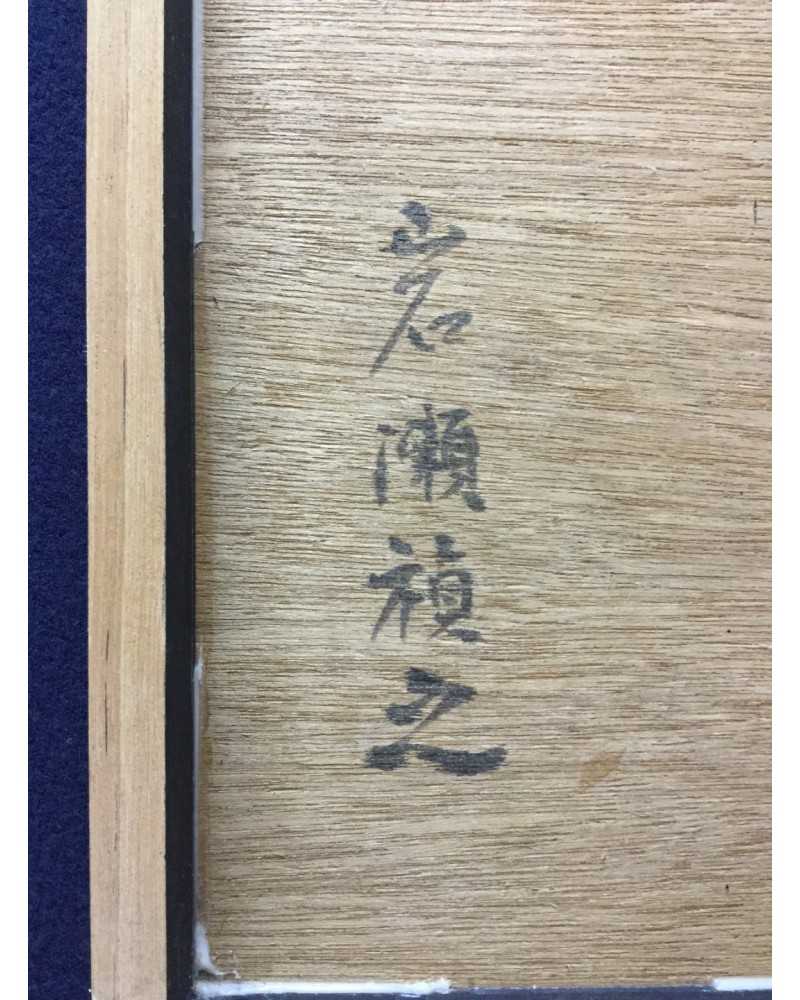 岩瀬禎之